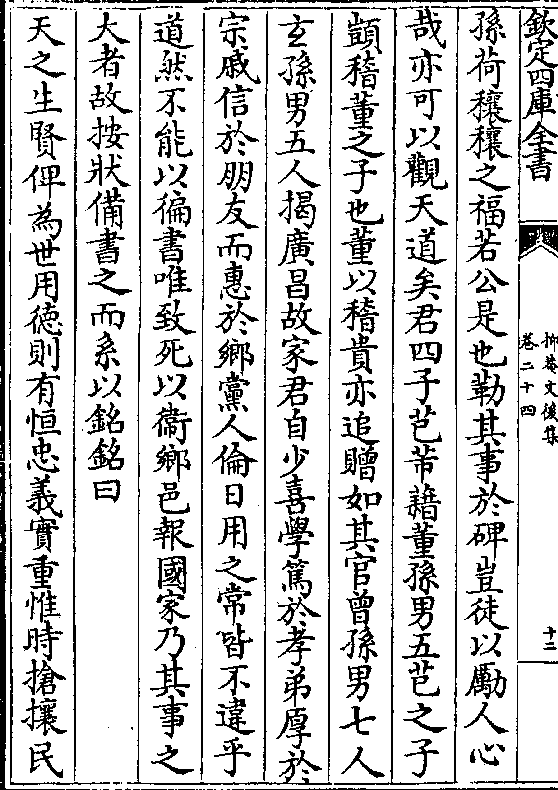 欽定四庫全書
抑菴文後集
卷二十四
十二
孫荷穰穰之福若公是也勒其事於碑豈徒以勵人心
哉亦可以觀天道矣君四子芑芾籍董孫男五芑之子
顗稽董之子也董以稽貴亦追贈如其官曾孫男七人
玄孫男五人揭廣昌故家君自少喜學篤於孝弟厚於
宗戚信於朋友而惠於鄉黨人倫日用之常皆不違乎
道然不能以徧書唯致死以衞鄉邑報國家乃其事之
大者故按狀備書之而系以銘銘曰
天之生賢俾為世用德則有恒忠義實重惟時搶攘民